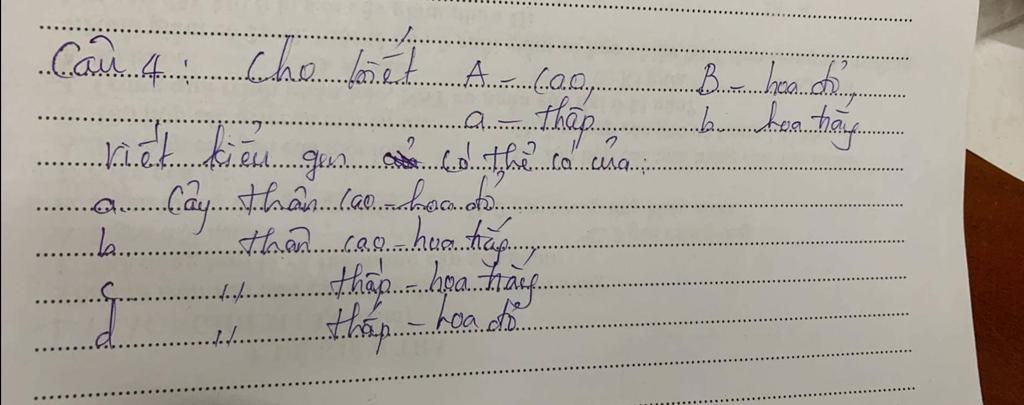 Câu 4: Cho biết A - cao, B - hoa đỏ,
a - thấp b - hoa trắng
viết kiểu gen có thể có của:
a. Cây thân cao - hoa đỏ
b thân cao - hoa trắng
c " thấp - hoa trắng
d " thấp - hoa đỏ